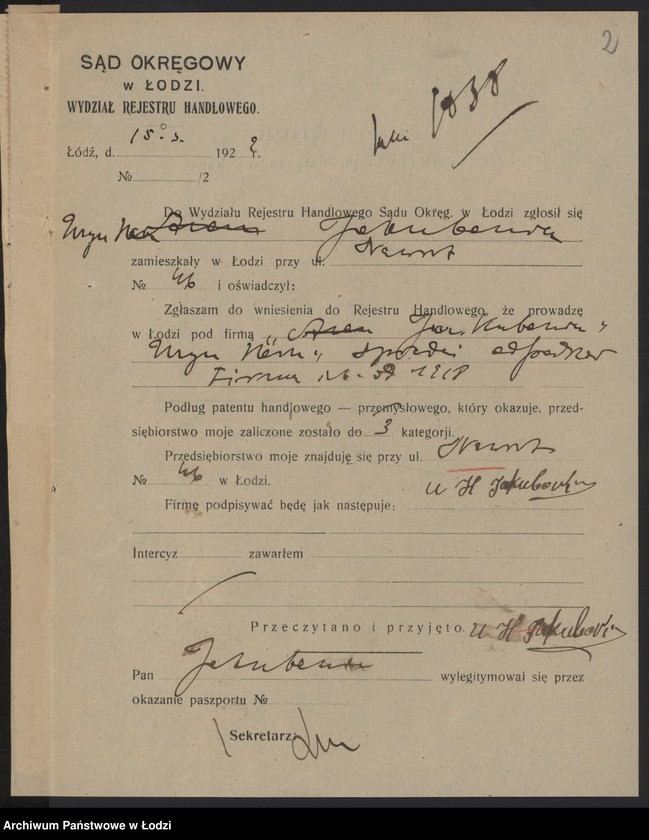 2
SĄD OKRĘGOWY
w ŁODZI.
WYDZIAŁ REJESTRU HANDLOWEGO.
1838
Łódź, d. 15.3. 1922 r.
№ /2
Do Wydziału Rejestru Handlowego Sądu Okręg. w Łodzi zgłosił się
Jakubowicz
zamieszkały w Łodzi przy ul. Nawrot
№ 46 i oświadczył:
Zgłaszam do wniesienia do Rejestru Handlowego, że prowadzę
w Łodzi pod firmą „
odpadków
Firma 1918
Podług patentu handlowego — przemysłowego, który okazuje, przed-
siębiorstwo moje zaliczone zostało do 3 kategorji.
Przedsiębiorstwo moje znajduje się przy ul. Nawrot
№ 46 w Łodzi.
U H Jakubovicz
Firmę podpisywać będę jak następuje:
Intercyz zawarłem
Przeczytano i przyjęto. U H Jakubovicz
Pan Jakubowicz wylegitymował się przez
okazanie paszportu №
Sekretarz:
Archiwum Państwowe w Łodzi